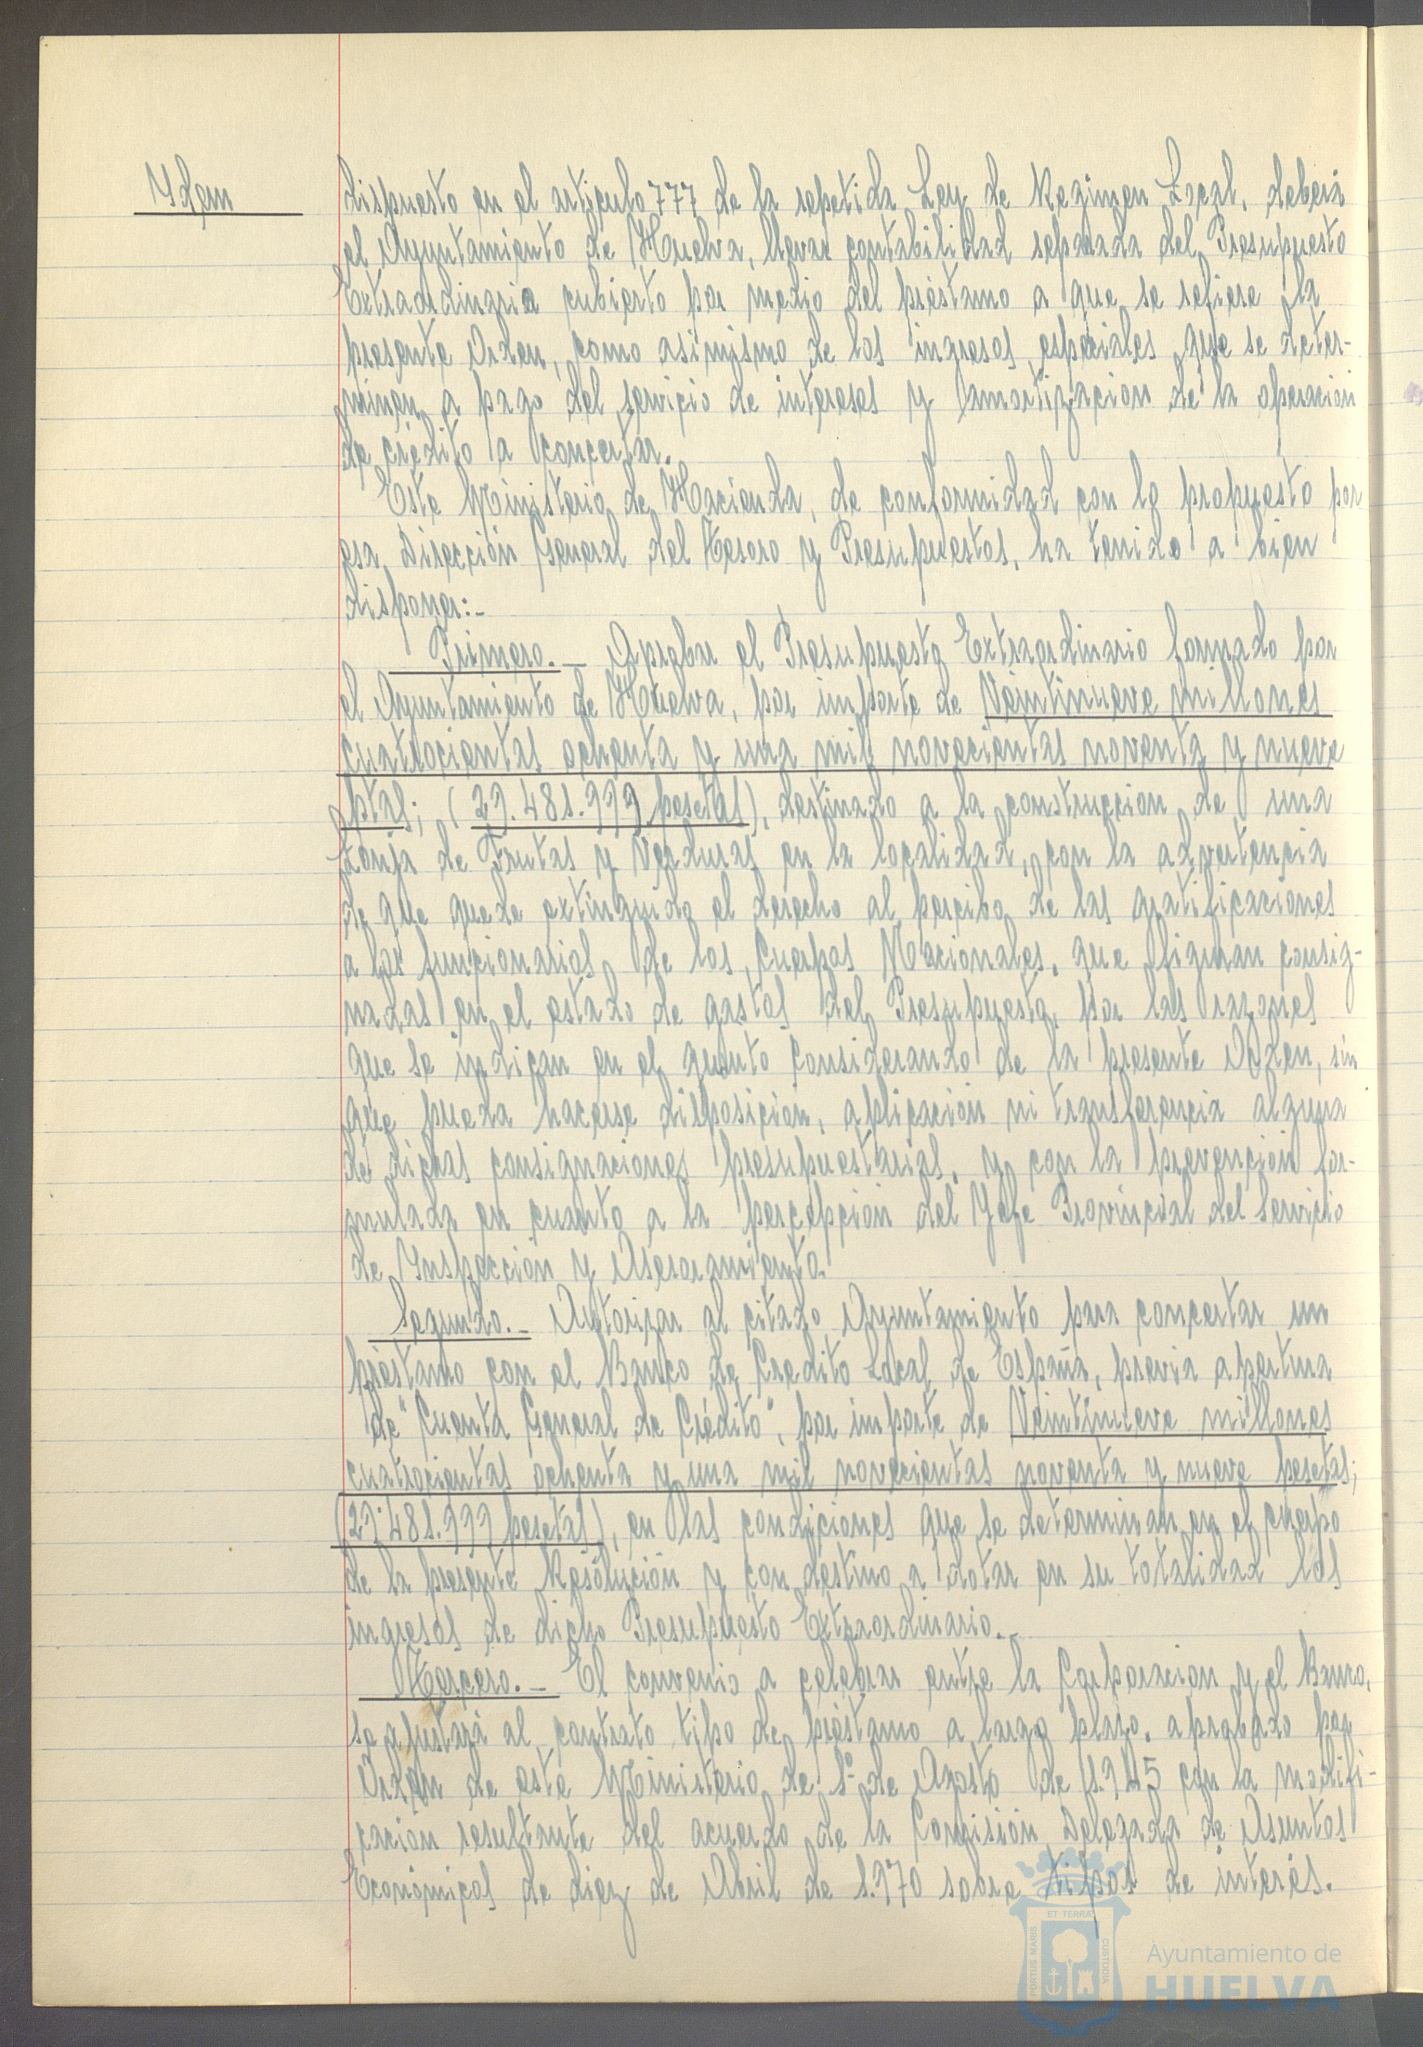 Ydem
dispuesto en el artículo 777 de la repetida Ley de Regimen Local, deberá
el Ayuntamiento de Huelva, llevar contabilidad separada del Presupuesto
Extraordinario cubierto por medio del préstamo a que se refiere la
presente Orden, como asimismo de los ingresos especiales que se deter-
minen a pago del servicio de intereses y amortizacion de la operación
de crédito a concertar.
Este Ministerio de Hacienda, de conformidad con lo propuesto por
esa Dirección General del Tesoro y Presupuestos, ha tenido a bien
disponer:-
Primero.- Aprobar el Presupuesto Extraordinario formado por
el Ayuntamiento de Huelva, por importe de Veintinueve millones
cuatrocientas ochenta y una mil novecientas noventa y nueve
ptas; (29.481.999 pesetas), destinado a la construccion de una
Lonja de Frutas y Verduras en la localidad, con la advertencia
de que quede extinguido el derecho al percibo de las gratificaciones
a los funcionarios de los Cuerpos Nacionales, que figuran consig-
nadas en el estado de gastos del Presupuesto, por las razones
que se indican en el quinto Considerando de la presente Orden, sin
que pueda hacerse disposición, aplicación ni transferencia alguna
de dichas consignaciones presupuestarias, y con la prevención for-
mulada en cuanto a la percepción del Jefe Provincial del Servicio
de Inspección y Asesoramiento.
Segundo.- Autorizar al citado Ayuntamiento para concertar un
préstamo con el Banco de Credito Local de España, previa apertura
de "Cuenta General de Crédito", por importe de Veintinueve millones
cuatrocientas ochenta y una mil novecientas noventa y nueve pesetas;
(29.481.999 pesetas), en las condiciones que se determinan en el cuerpo
de la presente Resolución y con destino a dotar en su totalidad los
ingresos de dicho Presupuesto Extraordinario.-
Tercero.- El convenio a celebrar entre la Corporacion y el Banco,
se ajustará al contrato tipo de préstamo a largo plazo, aprobado por
Orden de este Ministerio de 1º de Agosto de 1.945 con la modifi-
cación resultante del acuerdo de la Comisión Delegada de Asuntos
Económicos de diez de Abril de 1.970 sobre tipos de interés.
PORTUS MARIS ET TERRAE CUSTODIA
Ayuntamiento de
HUELVA